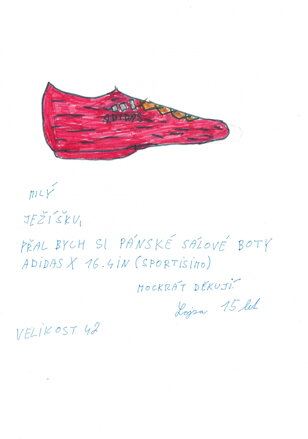 ADIDAS
MILÝ
JEŽÍŠKU,
PŘÁL BYCH SI PÁNSKÉ SÁLOVÉ BOTY
ADIDAS X 16.4 IN (SPORTISIMO)
MOCKRÁT DĚKUJI
15 let
VELIKOST 42